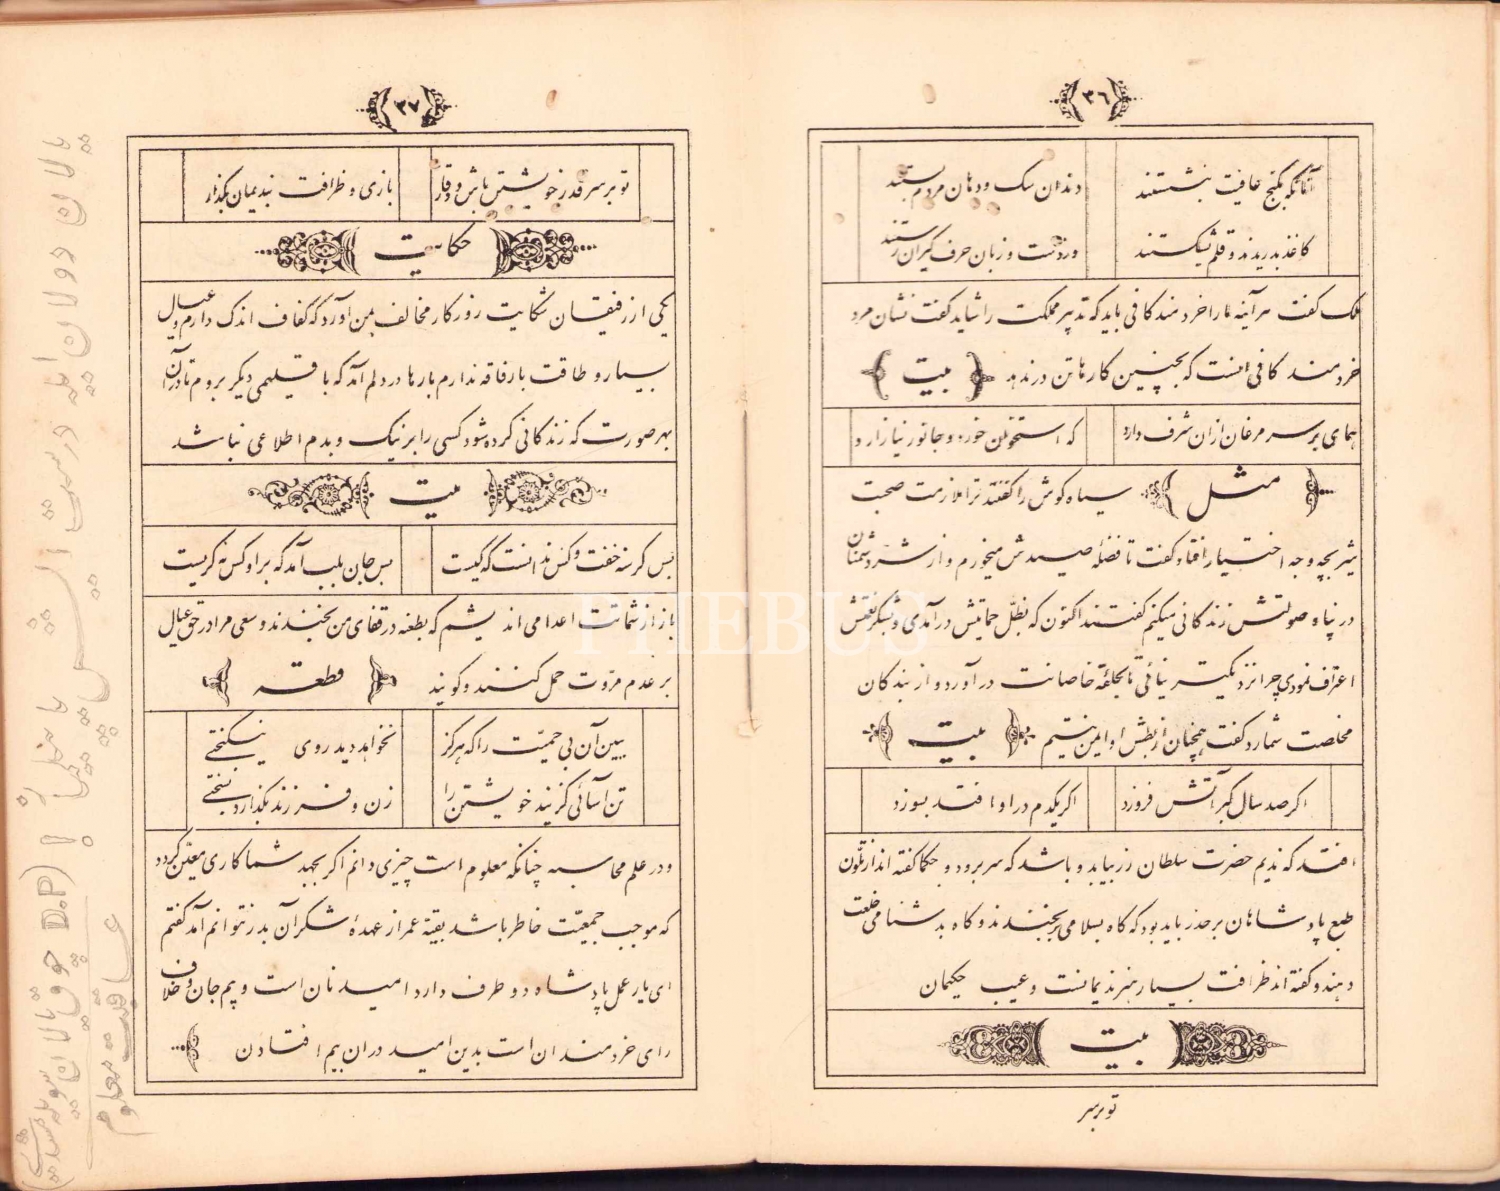 ٣٦
آنانکه بکنج عافیت بنشستند
دندان سک ودهان مردم بستند
کاغذ بدریدند وقلم بشکستند
وز دست وزبان حرف گیران رستند
ملک کفت هرآینه مارا خردمند کافی باید که تدبیر مملکت را شاید کفت نشان مرد
خردمند کافی انست که بچنین کارها تن درندهد
بیت
همای بر سر مرغان ازان شرف دارد
که استخوان خورد وجانور نیازارد
مثل
سیاه کوش را کفتند ترا ملازمت صحبت
شیر بچه وجه اختیار افتاد کفت تا فضلهٔ صیدش میخورم واز شر دشمنان
در پناه صولتش زندکانی میکنم کفتند اکنون که بظل حمایتش درآمدی وبشکر نعمتش
اعتراف نمودی چرا نزدیکتر نیائی تا بحلقهٔ خاصانت درآورد واز بندکان
مخلصت شمارد کفت همچنان از بطش او ایمن نیستم
بیت
اکر صد سال کبر آتش فروزد
اکر یکدم دراو افتد بسوزد
افتد که ندیم حضرت سلطان زر بیابد وباشد که سر برود وحکما کفته اند از تلون
طبع پادشاهان برحذر باید بود که کاه بسلامی برنجند وکاه بدشنامی خلعت
دهند وکفته اند ظرافت بسیار هنر ندیمانست وعیب حکیمان
بیت
تو بر سر
٣٧
تو بر سر قدر خویشتن باش ووقار
بازی وظرافت بندیمان بکذار
حکایت
یکی از رفیقان شکایت روزکار مخالف بمن آورد که کفاف اندک دارم وعیال
بسیار وطاقت بار فاقه ندارم بارها در دلم آمد که باقلیمی دیکر بروم تا درآن
بهر صورت که زندکانی کرده شود کسی را بر نیک وبدم اطلاعی نباشد
بیت
بس کرسنه خفت وکس ندانست که کیست
بس جان بلب آمد که براو کس نکریست
باز از شماتت اعدا می اندیشم که بطعنه در قفای من بخندند وسعی مرا در حق عیال
بر عدم مروت حمل کنند وکویند
قطعه
ببین آن بی حمیت را که هرکز
نخواهد دید روی نیکبختی
تن آسائی کزیند خویشتن را
زن وفرزند بکذارد بسختی
ودر علم محاسبه چنانکه معلوم است چیزی دانم اکر بجهد شما کاری معین کردد
که موجب جمعیت خاطر باشد بقیهٔ عمر از عهدهٔ شکر آن بدر نتوانم آمد کفتم
ای یار عمل پادشاه دو طرف دارد امید نان است وبیم جان وخلاف
رای خردمندان است بدین امید دران بیم افتادن
PHEBUS